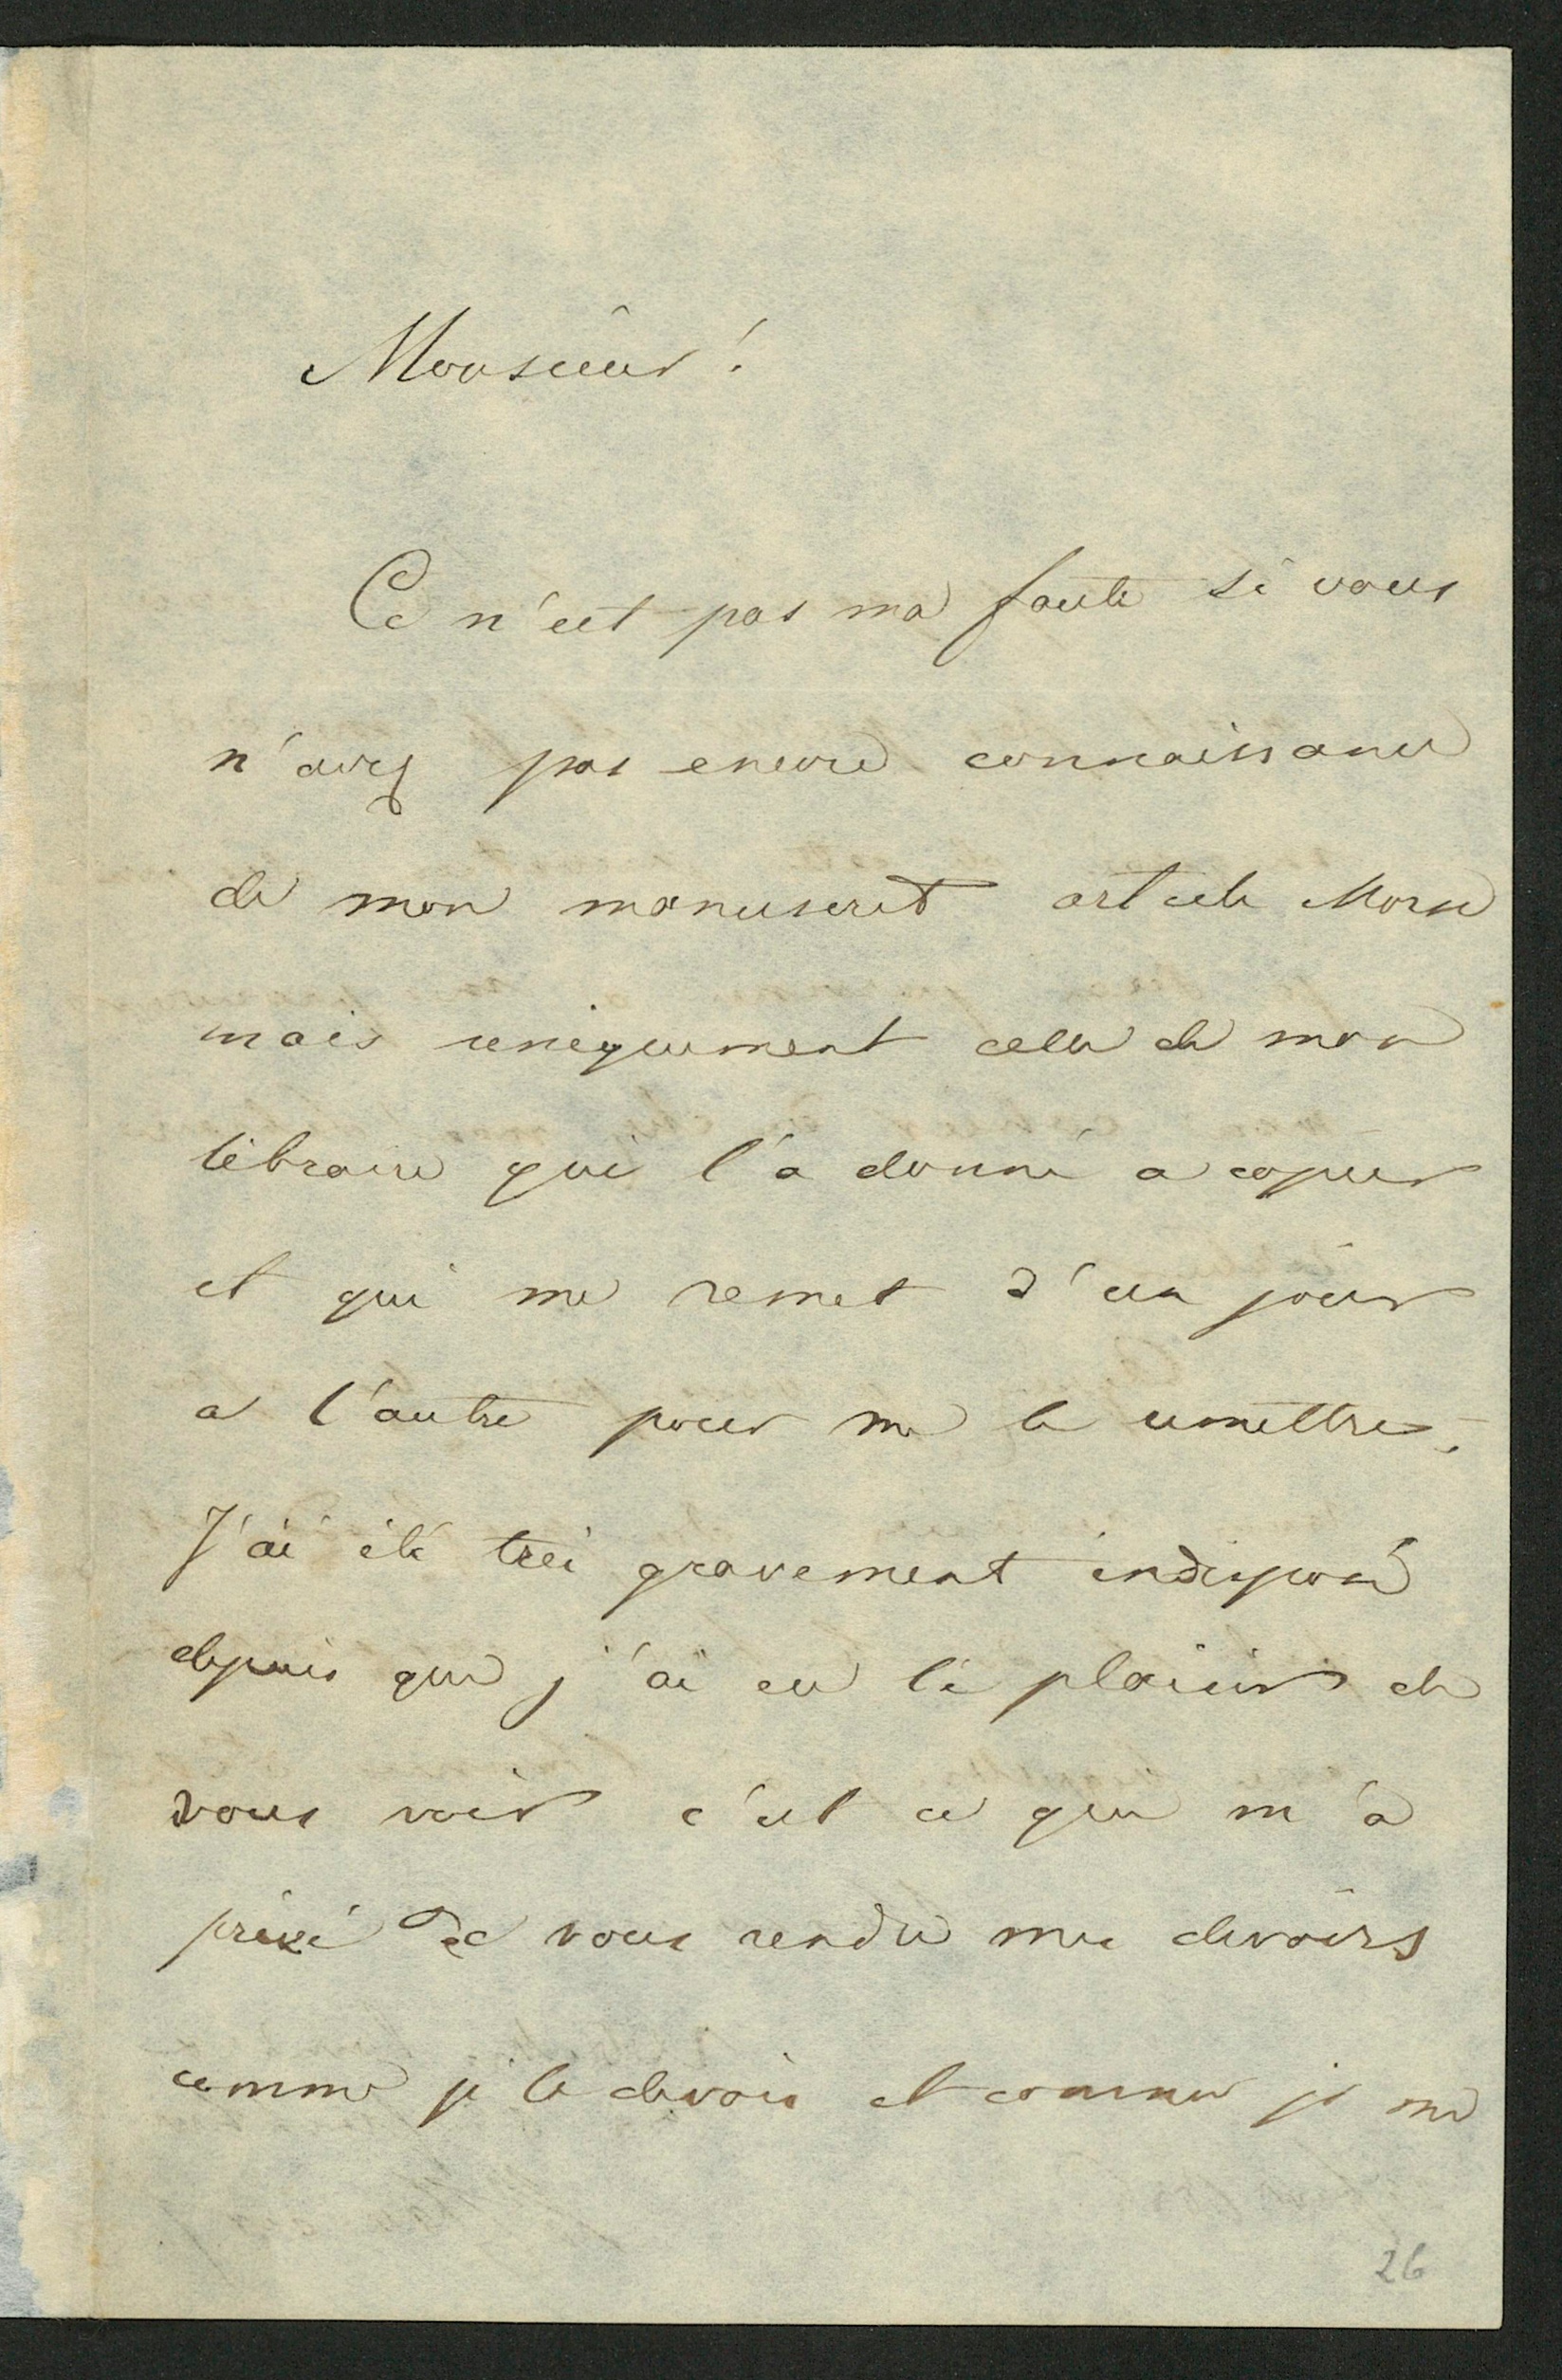 Monsieur!
Ce n'est pas ma faute si vous
n'avez pas encore connaissance
de mon manuscrit article Morse
mais uniquement celle de mon
libraire qui l'a donné a copier
et qui me remet d'un jour
a l'autre pour me le remettre.
J'ai été très gravement indisposé
depuis que j'ai eu le plaisir de
vous voir c'est ce qui m'a
privé de vous rendre mes devoirs
comme je le devois et comme je me
26